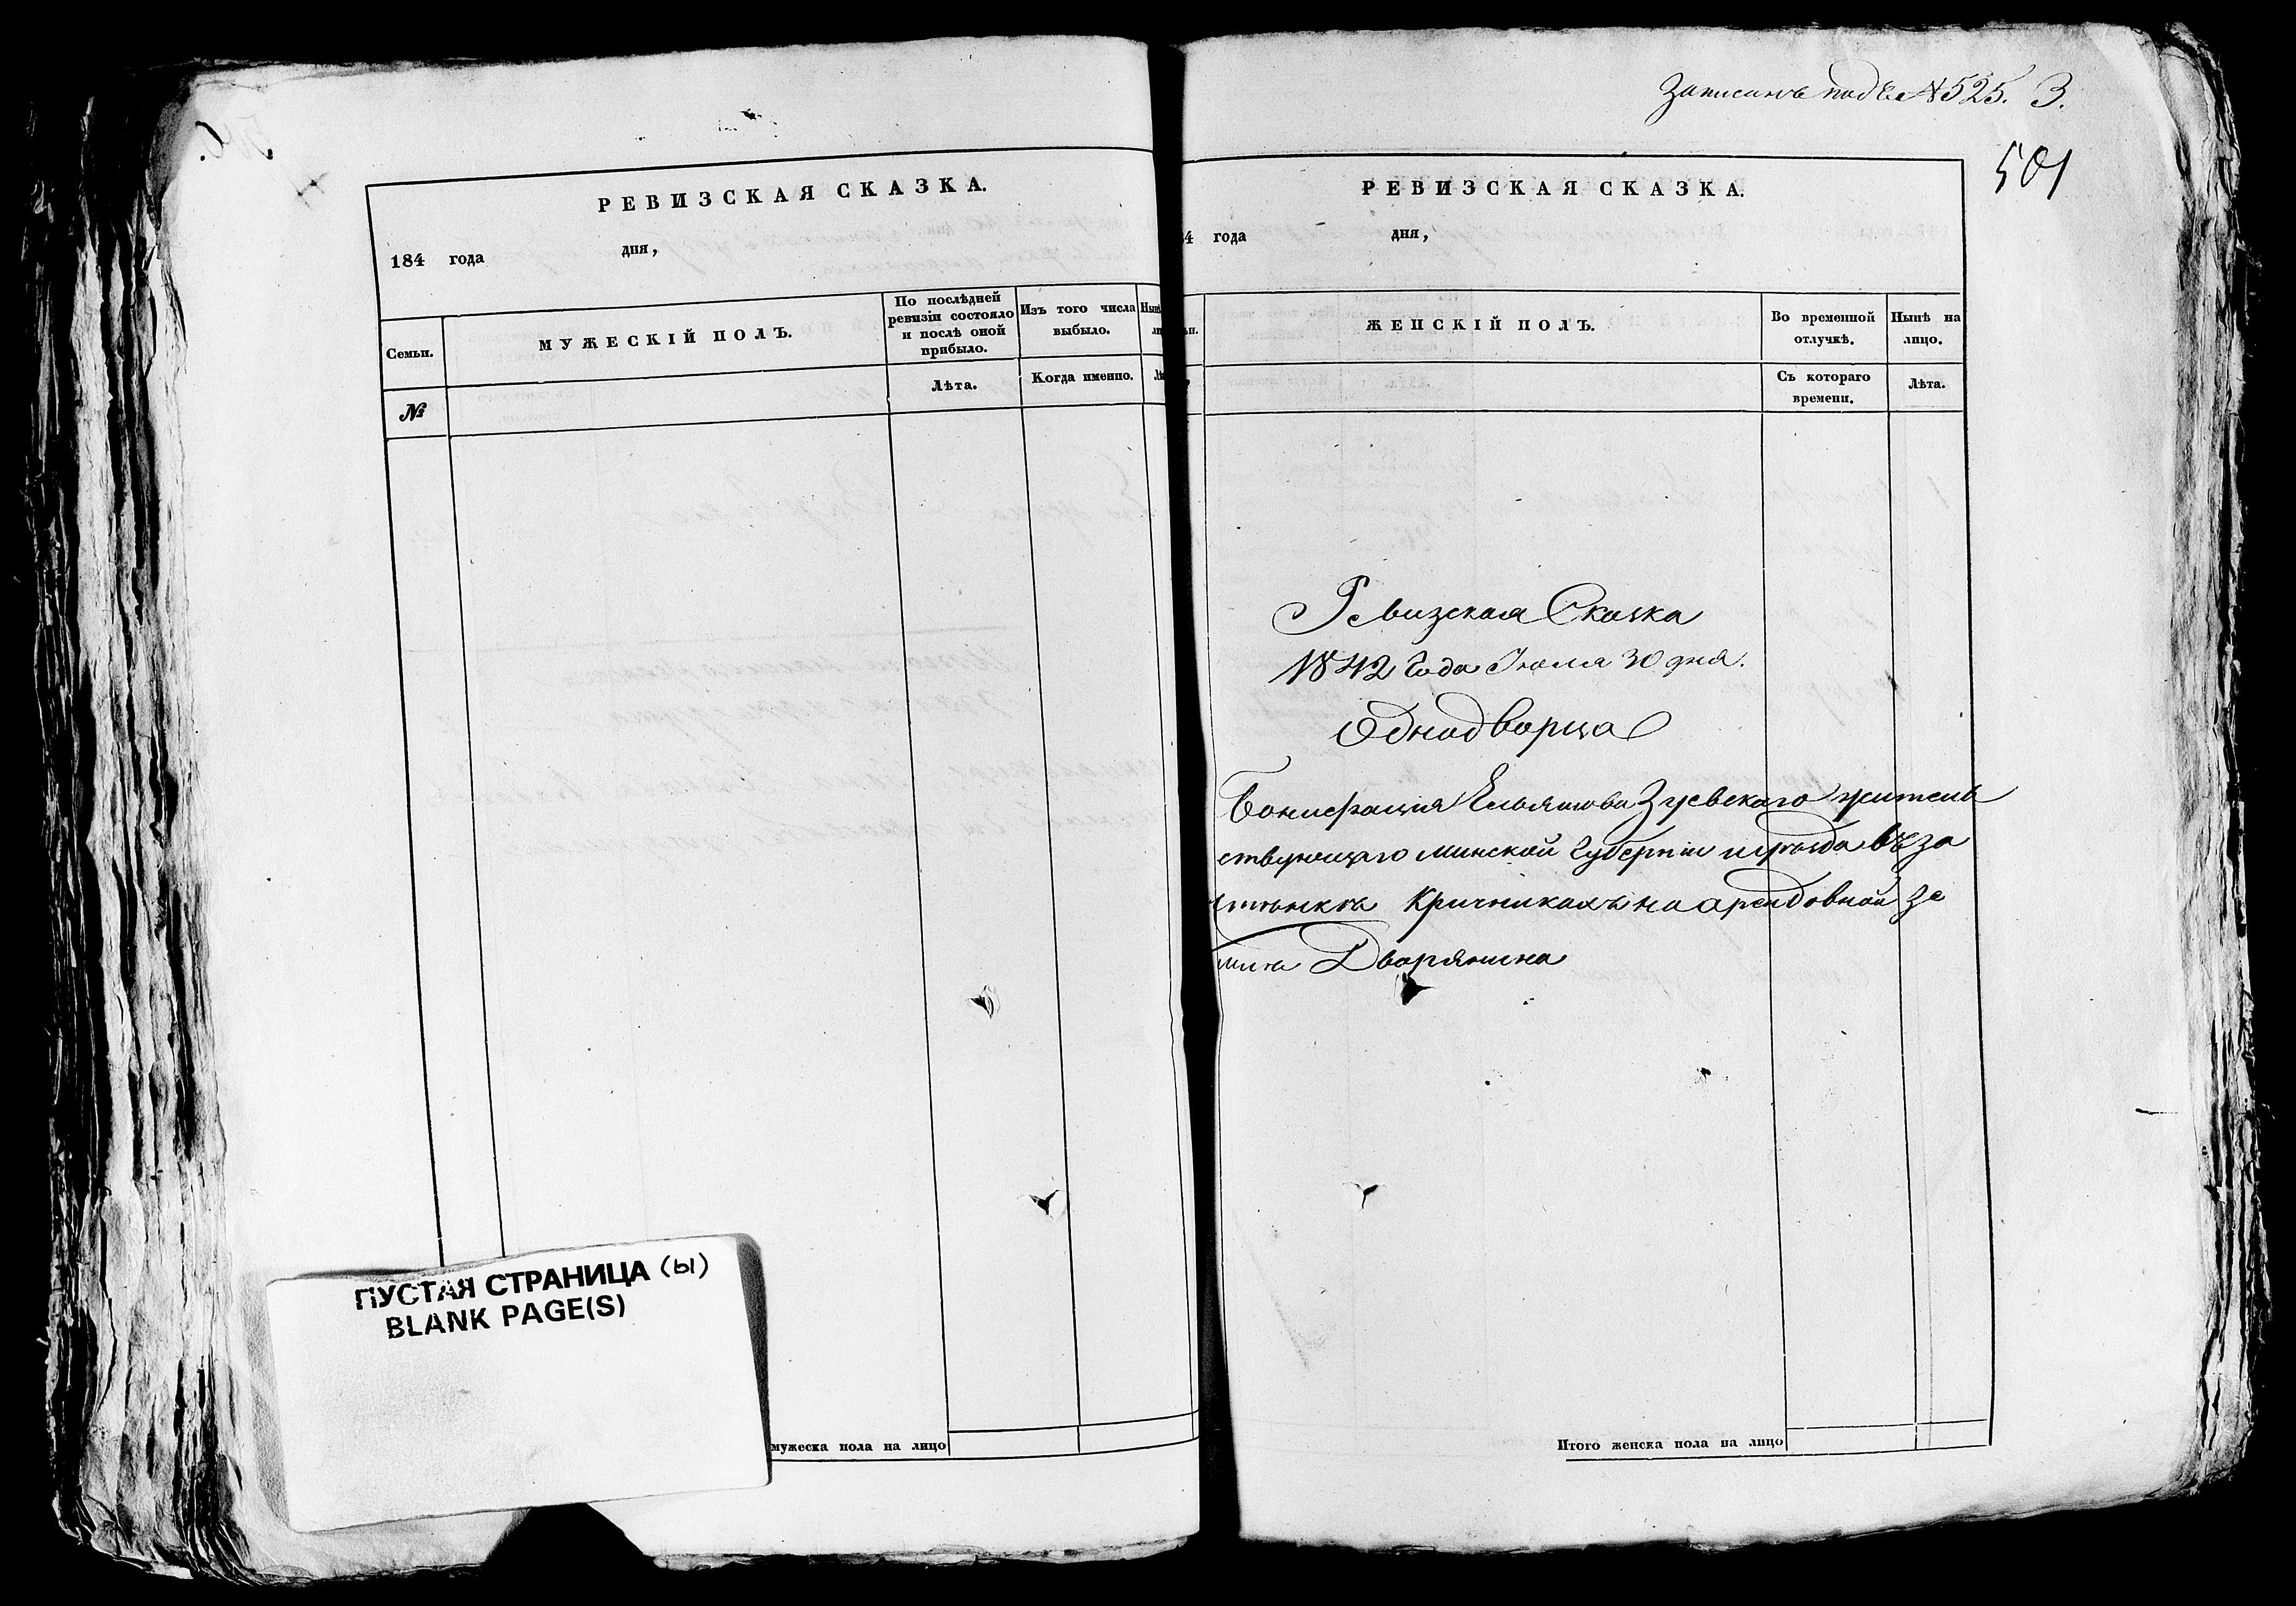 РЕВИЗСКАЯ СКАЗКА.
184 года дня,
Семьи.
МУЖЕСКІЙ ПОЛЪ.
По послѣдней
ревизіи состояло
и послѣ оной
прибыло.
Изъ того числа
выбыло.
№
Лѣта.
Когда именно.
мужеска пола на лицо
ПУСТАЯ СТРАНИЦА (ы)
BLANK PAGE(S)
Записанъ подъ № 525. З.
501
РЕВИЗСКАЯ СКАЗКА.
4 года дня,
ЖЕНСКІЙ ПОЛЪ.
Во временной
отлучкѣ.
Нынѣ на
лицо.
Съ котораго
времени.
Лѣта.
Ревизская Сказка
1842 Года Іюля 30 дня.
Однодворца
Бонифація Зуевскаго житель
ствующаго Минской Губерніи и уѣзда въ за
Кричникахъ на арендовной зе
млѣ Дворянина
Итого женска пола на лицо